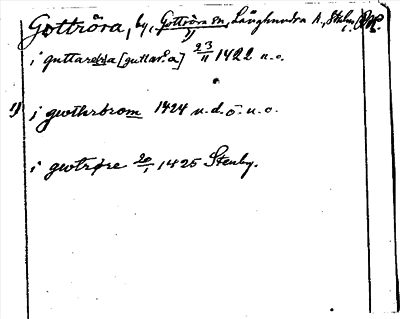 Gottröra, by, Gottröra sn, Långhundra h., Sthlms
1)
i guttarødda [guttarö.a] 23/11 1422 u.o.
1) j gwthrbrom 1424 u.d.o.u.o.
i gwtrøre 20/1 1425 Stenby.